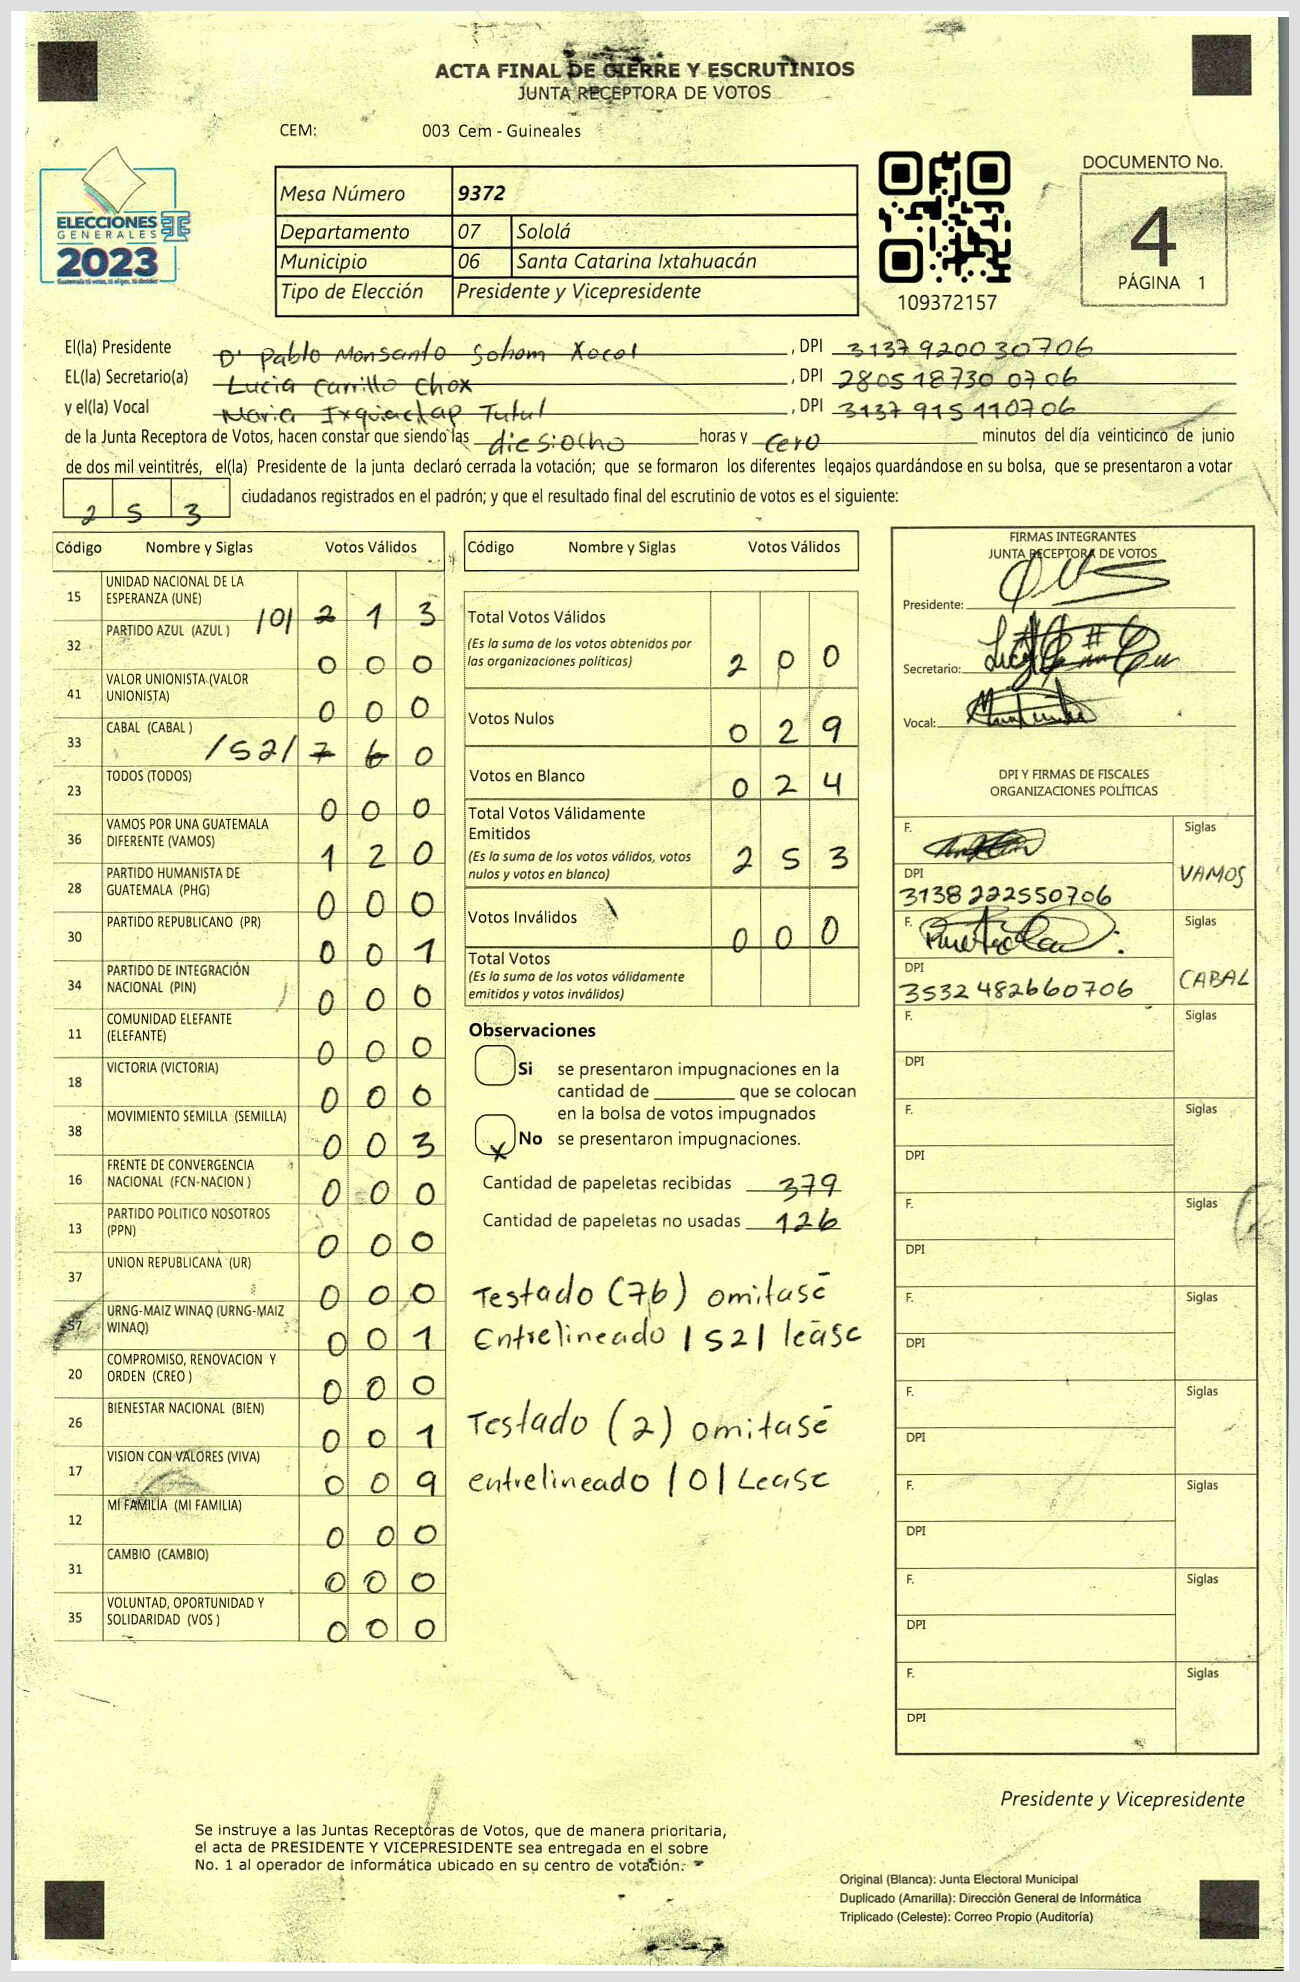 ACTA FINAL DE CIERRE Y ESCRUTINIOS
JUNTA RECEPTORA DE VOTOS
CEM: 003 Cem - Guineales
ELECCIONES
GENERALES
2023
Mesa Número 9372
Departamento 07 Sololá
Municipio 06 Santa Catarina Ixtahuacán
Tipo de Elección Presidente y Vicepresidente
109372157
DOCUMENTO No.
4
PÁGINA 1
El(la) Presidente D' Pablo Monsanto Sohom Xocol , DPI 3137920030706
EL(la) Secretario(a) Lucia Carrillo Chox , DPI 2805187300706
y el(la) Vocal Maria Ixquiactap Tutul , DPI 3137915110706
de la Junta Receptora de Votos, hacen constar que siendo las diesiocho horas y cero minutos del día veinticinco de junio
de dos mil veintitrés, el(la) Presidente de la junta declaró cerrada la votación; que se formaron los diferentes legajos guardándose en su bolsa, que se presentaron a votar
253 ciudadanos registrados en el padrón; y que el resultado final del escrutinio de votos es el siguiente:
Código Nombre y Siglas Votos Válidos
15 UNIDAD NACIONAL DE LA ESPERANZA (UNE) /0/ 2 1 3
32 PARTIDO AZUL (AZUL ) 0 0 0
41 VALOR UNIONISTA (VALOR UNIONISTA) 0 0 0
33 CABAL (CABAL ) /52/ 7 6 0
23 TODOS (TODOS) 0 0 0
36 VAMOS POR UNA GUATEMALA DIFERENTE (VAMOS) 1 2 0
28 PARTIDO HUMANISTA DE GUATEMALA (PHG) 0 0 0
30 PARTIDO REPUBLICANO (PR) 0 0 1
34 PARTIDO DE INTEGRACIÓN NACIONAL (PIN) 0 0 0
11 COMUNIDAD ELEFANTE (ELEFANTE) 0 0 0
18 VICTORIA (VICTORIA) 0 0 0
38 MOVIMIENTO SEMILLA (SEMILLA) 0 0 3
16 FRENTE DE CONVERGENCIA NACIONAL (FCN-NACION ) 0 0 0
13 PARTIDO POLITICO NOSOTROS (PPN) 0 0 0
37 UNION REPUBLICANA (UR) 0 0 0
57 URNG-MAIZ WINAQ (URNG-MAIZ WINAQ) 0 0 1
20 COMPROMISO, RENOVACION Y ORDEN (CREO ) 0 0 0
26 BIENESTAR NACIONAL (BIEN) 0 0 1
17 VISION CON VALORES (VIVA) 0 0 9
12 MI FAMILIA (MI FAMILIA) 0 0 0
31 CAMBIO (CAMBIO) 0 0 0
35 VOLUNTAD, OPORTUNIDAD Y SOLIDARIDAD (VOS ) 0 0 0
Código Nombre y Siglas Votos Válidos
Total Votos Válidos 2 0 0
(Es la suma de los votos obtenidos por
las organizaciones políticas)
Votos Nulos 0 2 9
Votos en Blanco 0 2 4
Total Votos Válidamente
Emitidos 2 5 3
(Es la suma de los votos válidos, votos
nulos y votos en blanco)
Votos Inválidos 0 0 0
Total Votos
(Es la suma de los votos válidamente
emitidos y votos inválidos)
Observaciones
Si se presentaron impugnaciones en la
cantidad de ________ que se colocan
en la bolsa de votos impugnados
x No se presentaron impugnaciones.
Cantidad de papeletas recibidas 379
Cantidad de papeletas no usadas 126
Testado (76) omitasé
Entrelineado /52/ leáse
Testado (2) omitasé
entrelineado /0/ Lease
FIRMAS INTEGRANTES
JUNTA RECEPTORA DE VOTOS
Presidente:
Secretario:
Vocal:
DPI Y FIRMAS DE FISCALES
ORGANIZACIONES POLÍTICAS
F. Siglas
VAMOS
DPI
3138222550706
F. Siglas
CABAL
DPI
3532482660706
F. Siglas
DPI
F. Siglas
DPI
F. Siglas
DPI
F. Siglas
DPI
F. Siglas
DPI
F. Siglas
DPI
F. Siglas
DPI
F. Siglas
DPI
Presidente y Vicepresidente
Se instruye a las Juntas Receptoras de Votos, que de manera prioritaria,
el acta de PRESIDENTE Y VICEPRESIDENTE sea entregada en el sobre
No. 1 al operador de informática ubicado en su centro de votación.
Original (Blanca): Junta Electoral Municipal
Duplicado (Amarilla): Dirección General de Informática
Triplicado (Celeste): Correo Propio (Auditoría)